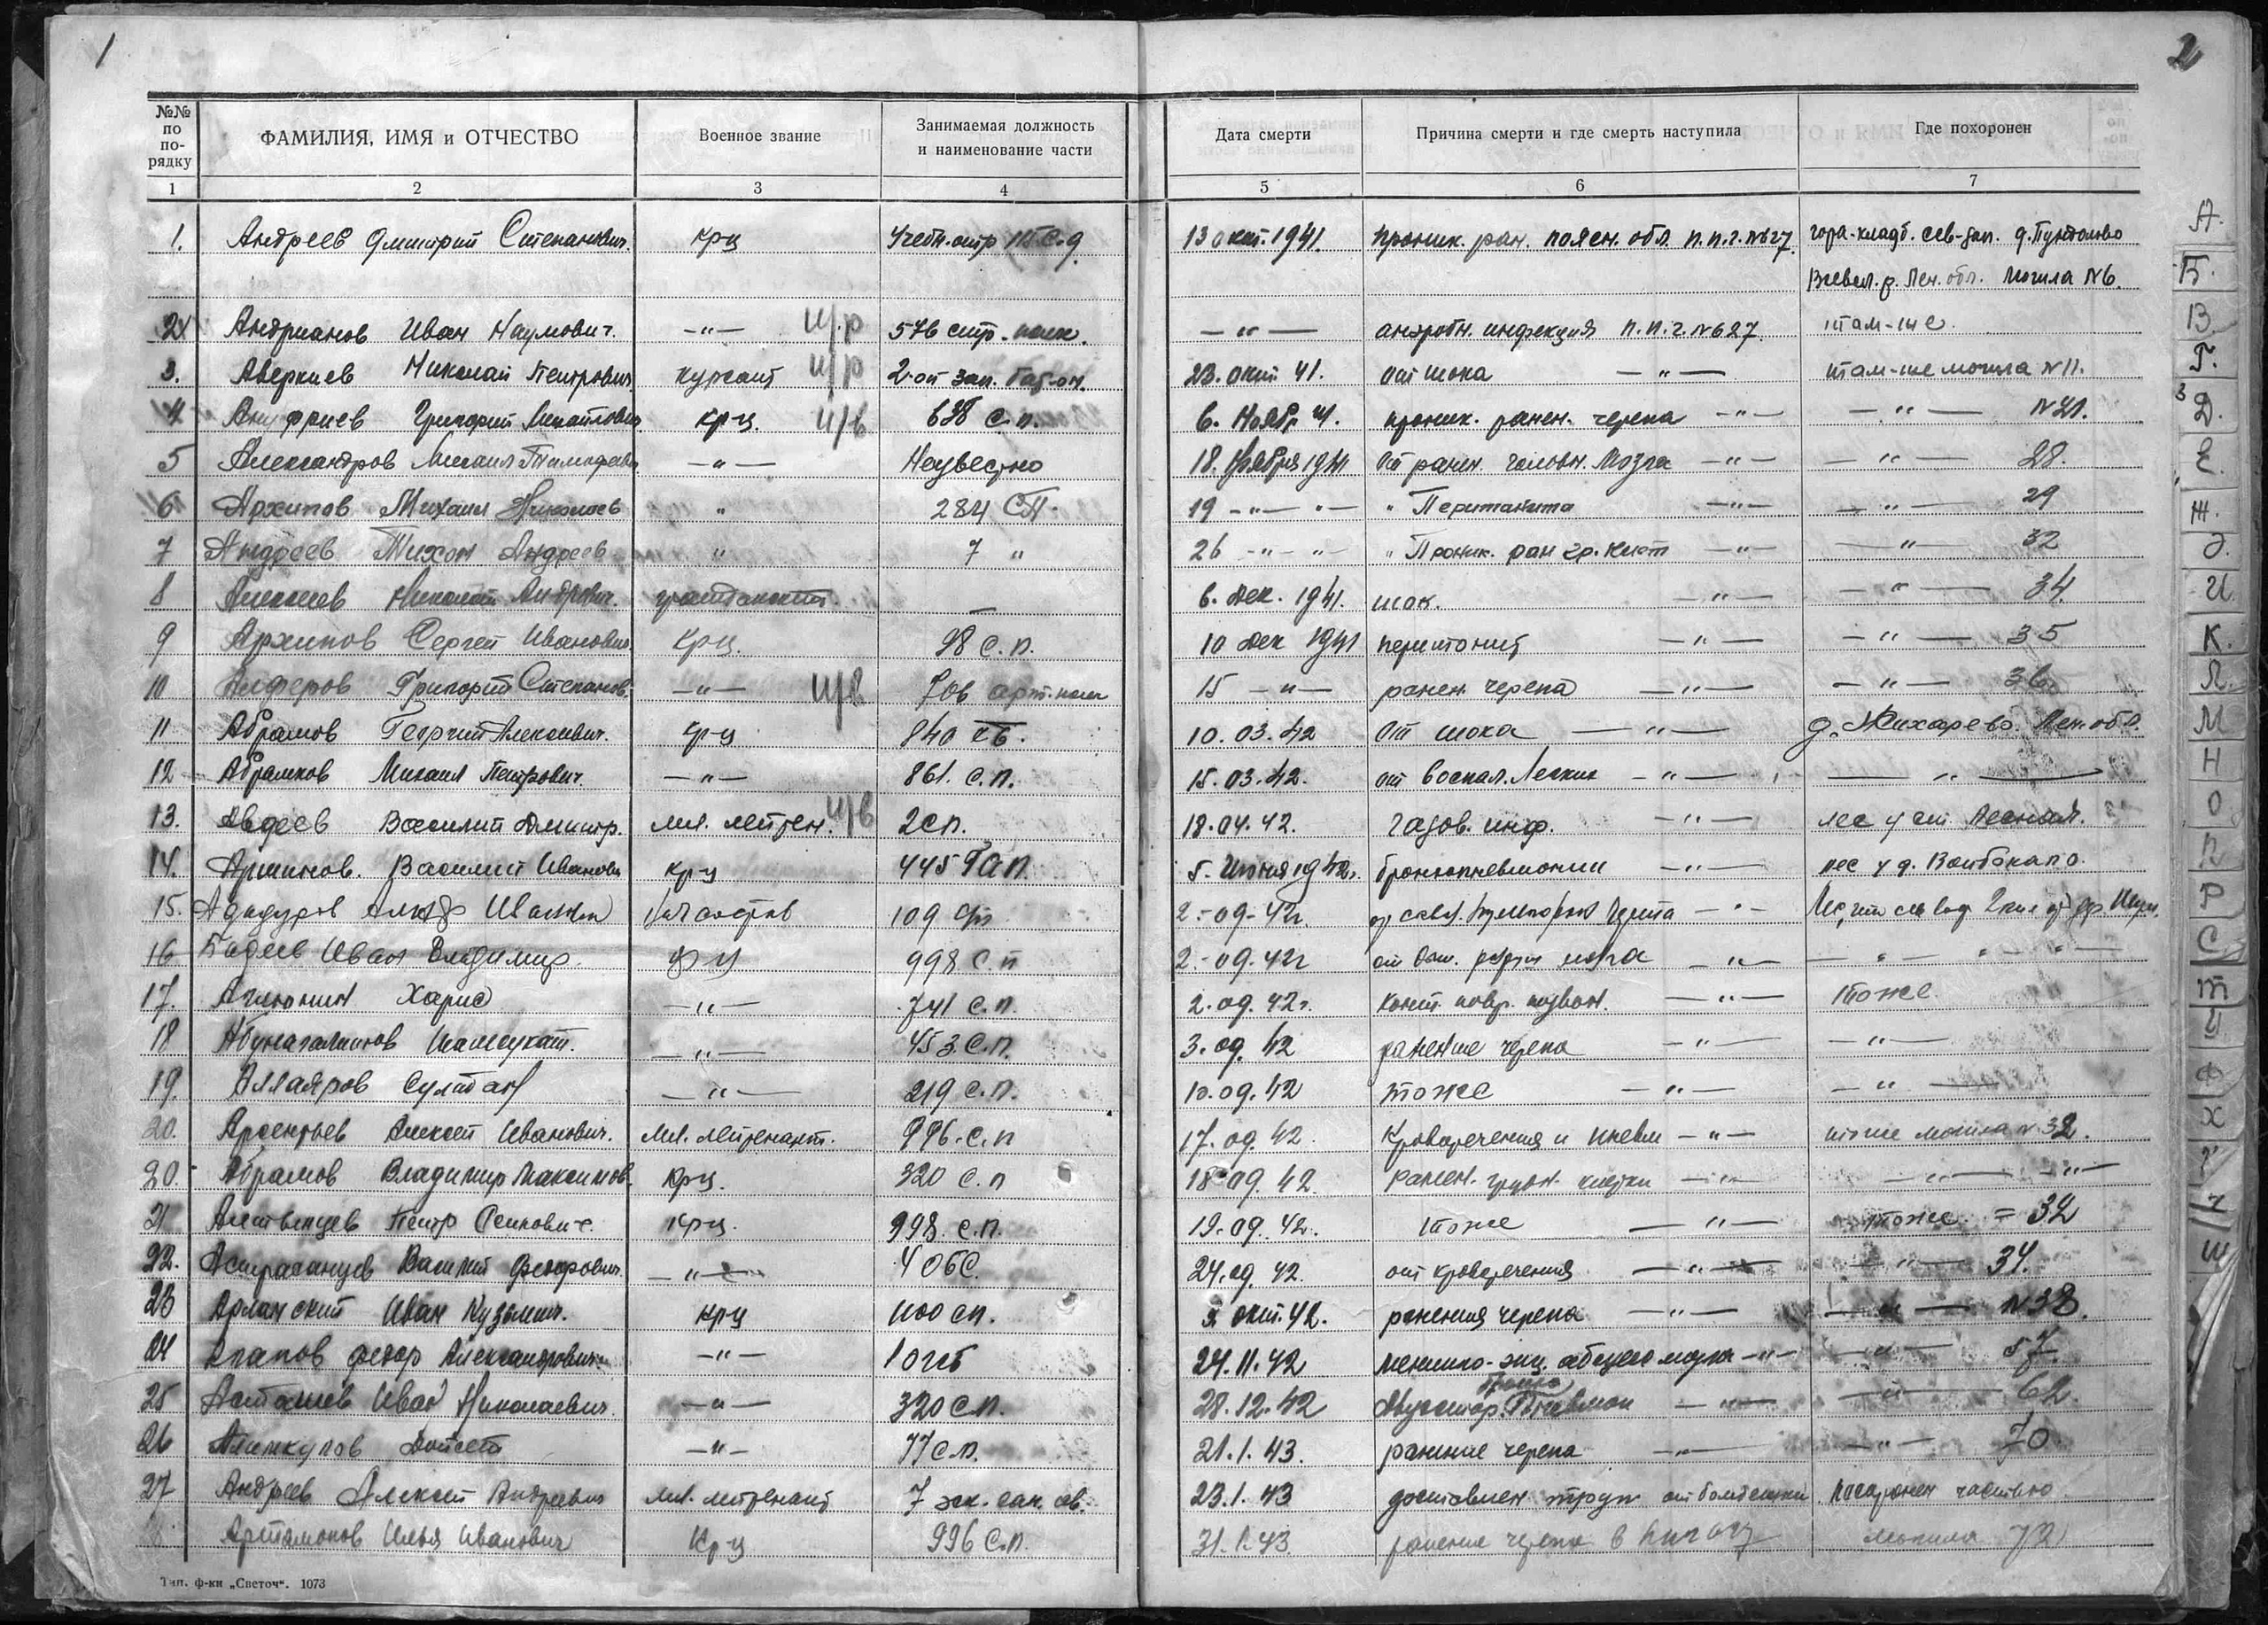 1
2
№№ по по-рядку
ФАМИЛИЯ, ИМЯ и ОТЧЕСТВО
Военное звание
Занимаемая должность и наименование части
Дата смерти
Причина смерти и где смерть наступила
Где похоронен
1 2 3 4 5 6 7
1. Андреев Дмитрий Степанович. крц Учебн. отр 115 с.д 13 окт. 1941. проник. ран. поясн. обл. п.п.г. №627. гора-кладб. сев-зап. д. Пунтолово
Всевол. р. Лен. обл. могила №6.
2 Андрианов Иван Наумович. —"— и/р 576 стр. полк. —"— анэробн. инфекция п.п.г. №627. там-же
3. Аверкиев Николай Петрович курсант и/р 2-ой зап. бат-он. 23. окт 41. от шока —"— там-же могила №11.
4 Ануфриев Григорий Михайлович. крц. и/в 638 с.п. 6. Ноябр 41. проник. ранен. черепа —"— —"— №21.
5 Александров Михаил Тимофеев —"— Неизвестно 18. Ноября 1941 От ранен. головн. Мозга —"— —"— 28.
6 Архипов Михаил Николаев " 284 СП. 19 —"— "— " Перитонита —"— —"— 29
7 Андреев Тихон Андреев " 7 " 26 —"— "— " Проник. ран гр. клет —"— —"— 32
8 Алексеев Николай Андрович. гражданский. — 6. Дек. 1941. шок. —"— —"— 34.
9 Архипов Сергей Иванович. Крц. 98 с.п. 10 Дек 1941 перитонит —"— —"— 35
10 Алферов Григорий Степанов. —"— и/в 706 арт. полк 15 —"— ранен. черепа —"— —"— 36.
11 Абрамов Георгий Алексевич. крц 840 10.03.42 От шока —"— д. Жихарево. Лен. обл.
12 Абрамков Михаил Петрович. —"— 861. с.п. 15.03.42. от воспал. Легких —"— —"—
13. Авдеев Василий Дмитр. мл. лейтен. и/в 2 сп. 18.04.42. газов. инф. —"— лес у ст. Лесная.
14. Аршинов. Василий Иванович крц 445 ГАП. 5. Июня 1942г. бронхопневмонии —"— лес у д. Войбокало.
15. 109 2.-09-42г. —"—
16 Иван Владимир. крц 998 с.п 2.-09.42г —"— —"—
17. Харис —"— 741 с.п. 2.09.42г. —"— тоже.
18 —"— 453 с.п. 3.09.42 ранение черепа —"— —"—
19. Аллаяров Султан —"— 219 с.п. 10.09.42 тоже —"— —"—
20. Арсентьев Алексей Иванович. мл. лейтенант. 996. с.п 17.09.42. Кровотечения и пневм —"— тоже могила №32.
20. Абрамов Владимир Максимов. крц. 320 с.п 18-09.42. ранен. грудн. клетки —"— —"— —"—
21 Петр Осипович. крц. 998. с.п. 19.09.42. тоже —"— тоже = 32
22. Астраханцев Василий Федорович —"— 4 ОБС. 24.09.42. от кровотечения —"— —"— 34.
23 Арланский Иван Кузьмич. крц 1100 сп. окт. 42. ранения черепа —"— —"— №38.
24 Агапов Федор Александрович. —"— 24.11.42 абцесс мозга —"— —"— 57.
25 Асташев Иван Николаевич. —"— 320 с.п. 28.12.42 Двухстор. пневмон —"— —"— 62.
26 Алимкулов —"— 77 с.п. 21.1.43. ранение черепа —"— —"— 70
27 Андреев Алексей Андреевич мл. лейтенант 23.1.43 доставлен труп от бомбежки похоронен частью
Артамонов Илья Иванович Крц 996 с.п. 31.1.43. ранение черепа в могила 72
Тип. ф-ки „Светоч". 1073
А.
Б.
В.
Г.
Д.
Е.
Ж.
З.
И
К.
Л.
М
Н
О
П
Р
С
Т
У
Ф
Х
Ц
Ч
Ш